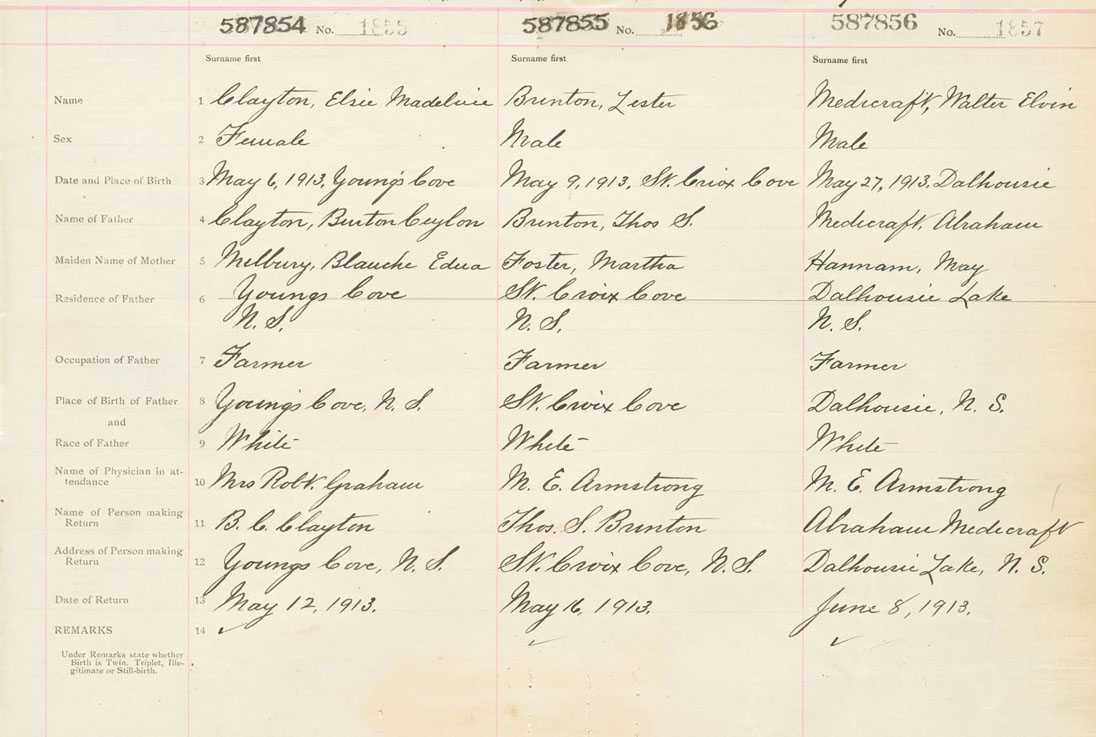 587854 No. 1855 587855 No. 1856 587856 No. 1857
Surname first Surname first Surname first
Name 1 Clayton, Elsie Madeline Brinton, Lester Medicraft, Walter Elvin
Sex 2 Female Male Male
Date and Place of Birth 3 May 6, 1913, Young's Cove May 9, 1913, St. Criox Cove May 27, 1913, Dalhousie
Name of Father 4 Clayton, Burton Ceylon Brinton, Thos S. Medicraft, Abraham
Maiden Name of Mother 5 Milbury, Blanche Edna Foster, Martha Hannam, May
Residence of Father 6 Youngs Cove St. Croix Cove Dalhousie Lake
N.S. N.S. N.S.
Occupation of Father 7 Farmer Farmer Farmer
Place of Birth of Father 8 Young's Cove, N.S. St. Croix Cove Dalhousie, N.S.
and
Race of Father 9 White White White
Name of Physician in at-
tendance 10 Mrs Robt. Graham M. E. Armstrong M. E. Armstrong
Name of Person making
Return 11 B. C. Clayton Thos. S. Brinton Abraham Medicraft
Address of Person making
Return 12 Youngs Cove, N.S. St. Croix Cove, N.S. Dalhousie Lake, N.S.
Date of Return 13 May 12, 1913. May 16, 1913. June 8, 1913.
REMARKS 14
Under Remarks state whether
Birth is Twin. Triplet, Ille-
gitimate or Still-birth.